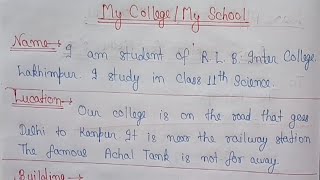 My College/My School
Name→ I am student of R.L.B. Inter College
Lakhimpur. I study in class 11th Science.
Lucation→ Our college is on the road that goes
Delhi to Kanpur. It is near the railway station
The famous Achal Tank is not for away
Building→